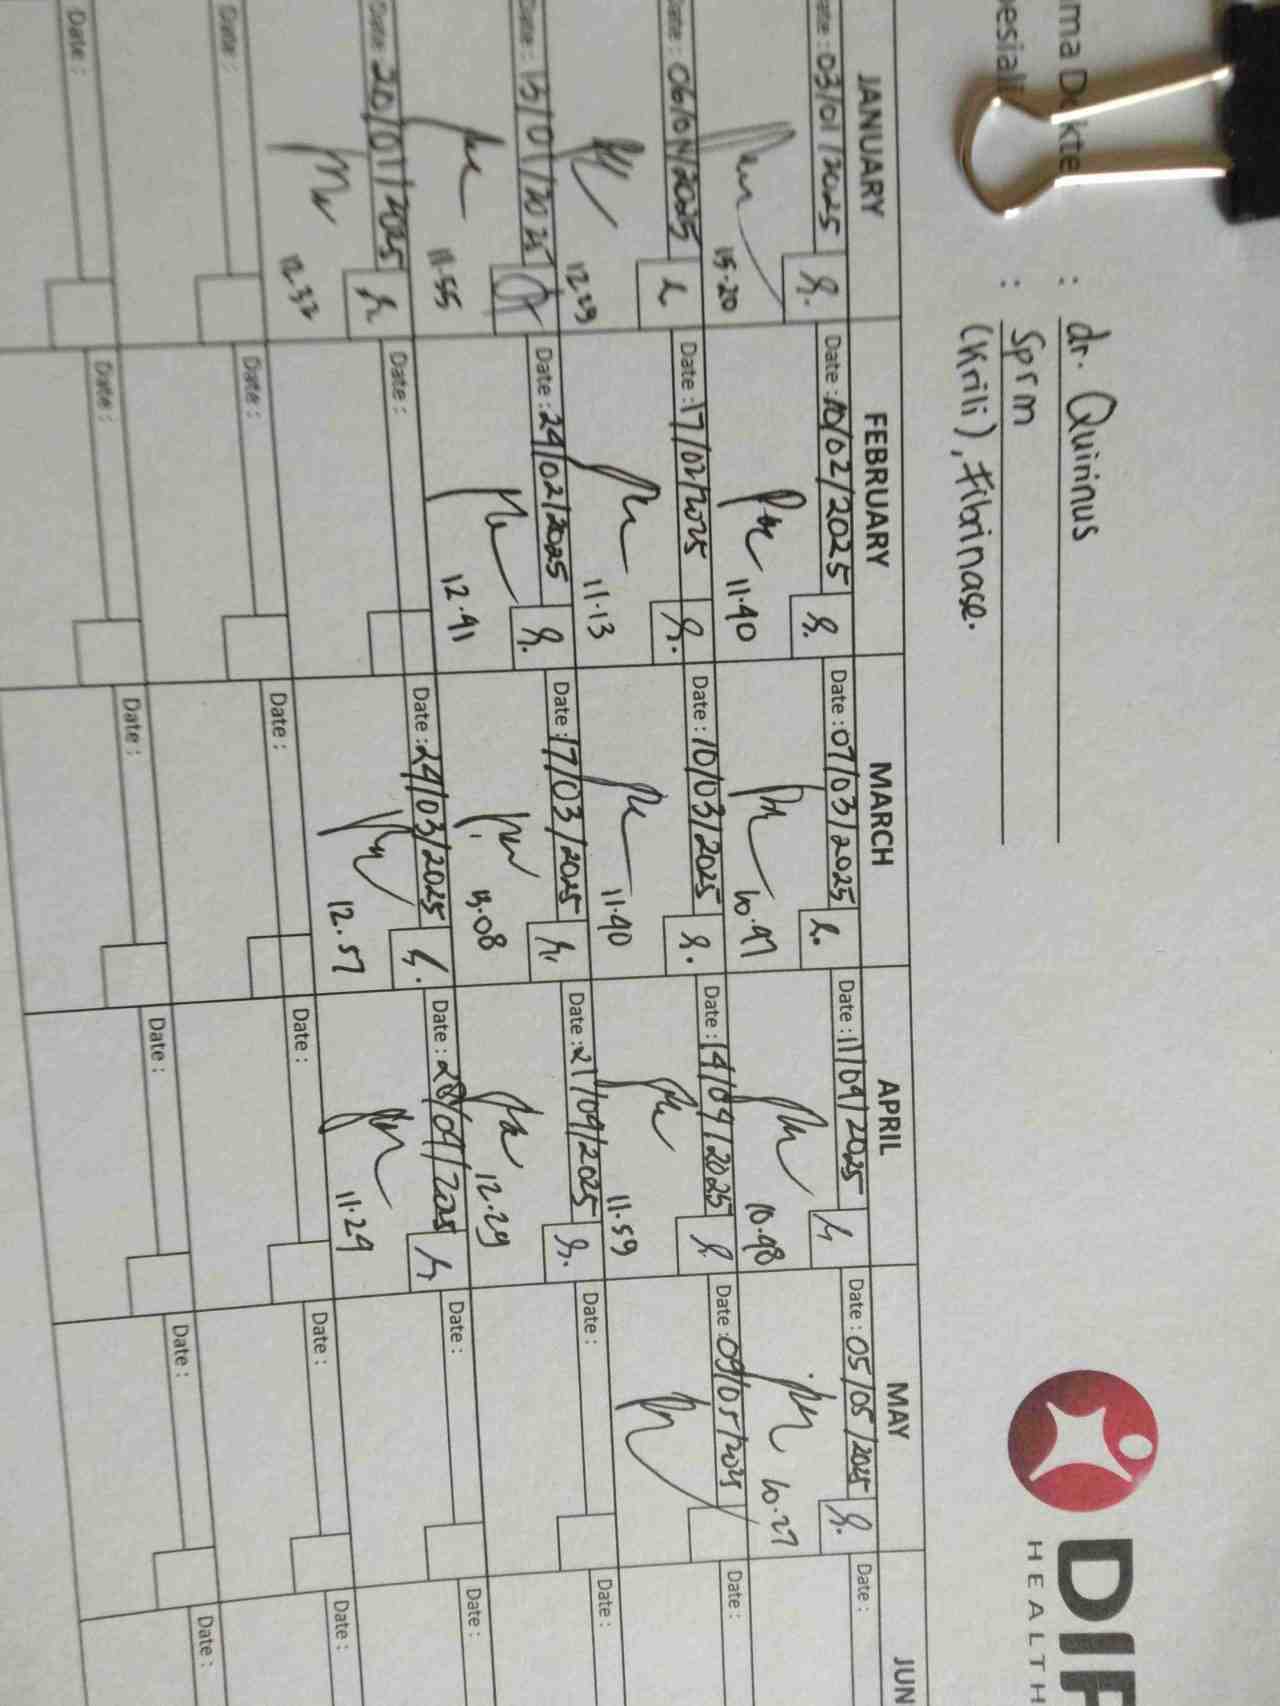 dr. Quirinus
: Sprm
(Krili), Fibrinase.
DIF
HEALTH
JANUARY
FEBRUARY
MARCH
APRIL
MAY
JUN
Date : 03/01/2025
Date : 10/02/2025
Date : 07/03/2025
Date : 11/04/2025
Date : 05/05/2025
Date :
15.20
11.40
10.47
10.48
10.27
Date : 06/01/2025
Date : 17/02/2025
Date : 10/03/2025
Date : 14/04/2025
Date : 09/05/2025
Date :
12.29
11.13
11.40
11.59
Date : 13/01/2025
Date : 24/02/2025
Date : 17/03/2025
Date : 21/04/2025
Date :
Date :
11.55
12.41
13.08
12.29
Date : 20/01/2025
Date :
Date : 24/03/2025
Date : 28/04/2025
Date :
Date :
12.32
12.57
11.24
Date :
Date :
Date :
Date :
Date :
Date :
Date :
Date :
Date :
Date :
Date :
Date :